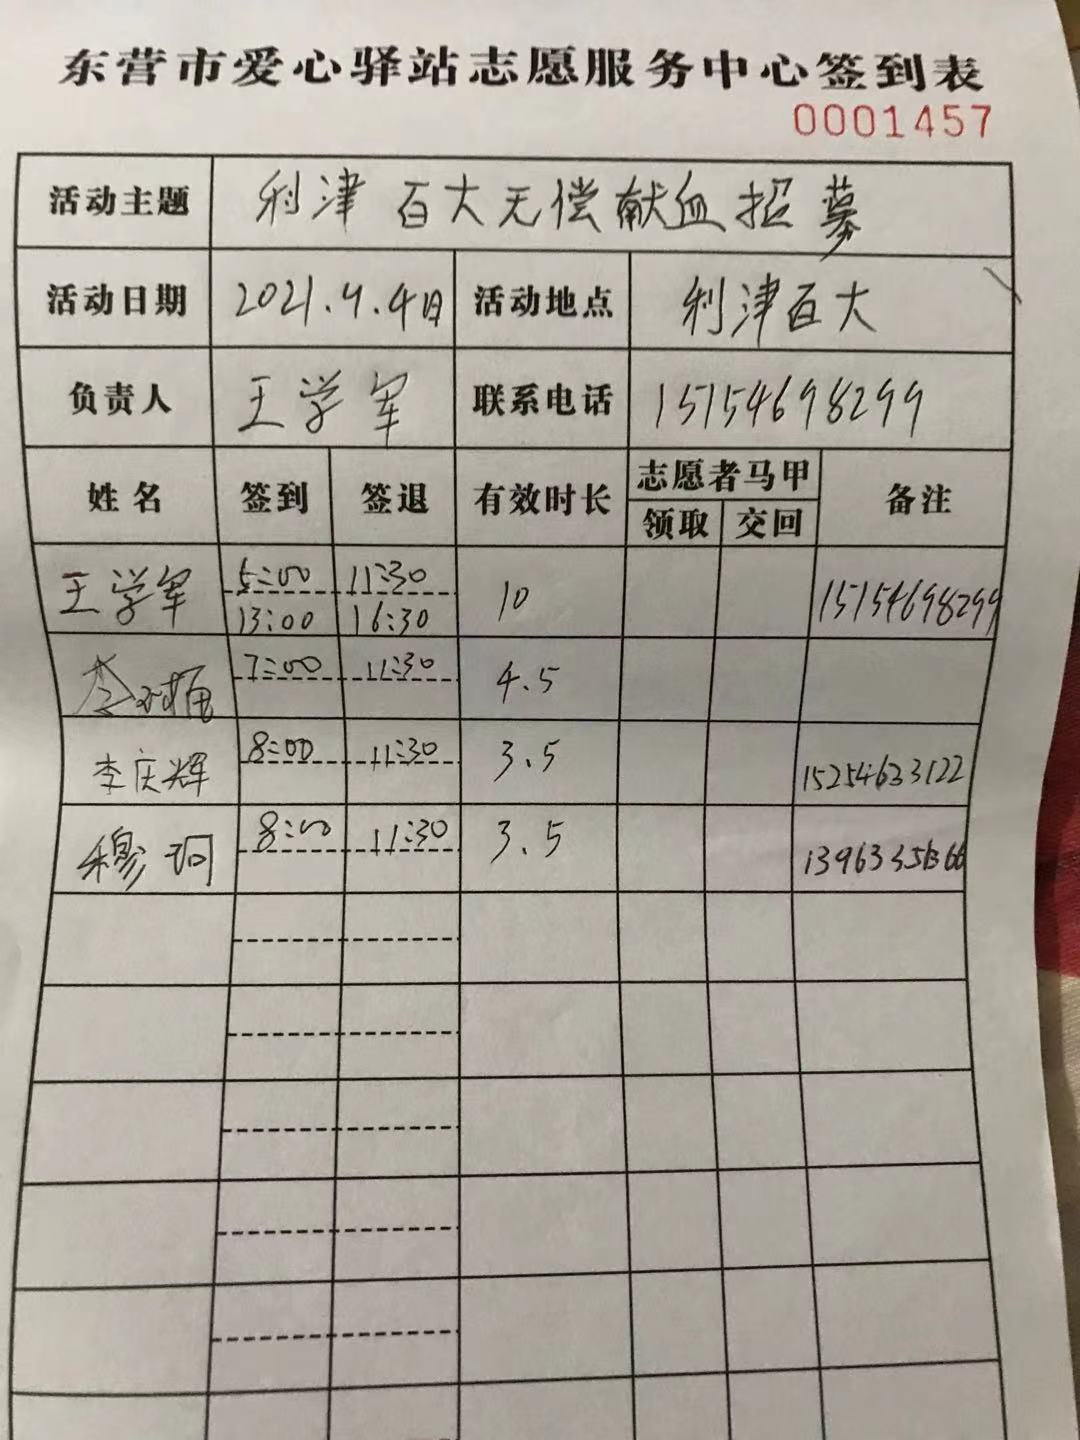 东营市爱心驿站志愿服务中心签到表
0001457
活动主题 利津百大无偿献血招募
活动日期 2021.4.4日 活动地点 利津百大
负责人 王学军 联系电话 15154698299
姓名 签到 签退 有效时长 志愿者马甲 备注
领取 交回
王学军 5:00 11:30 10 15154698299
13:00 16:30
7:00 11:30 4.5
李庆辉 8:00 11:30 3.5 15254633122
穆珂 8:00 11:30 3.5 13963356366